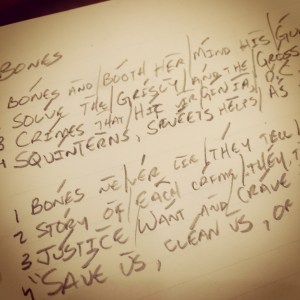 BONES
BONES AND/BOOTH HER/MIND HIS/
SOLVE THE/GRISLY/AND THE/GROSS
3 CRIMES THAT/HIT VIRGINIA/D.C.
4 SQUINTERNS, SWEETS HELPS/AS
1 BONES NEVER LIE/THEY TELL
2 STORY OF/EACH CRIME/THEY,
3 JUSTICE/WANT AND/CRAVE
4 "SAVE US, CLEAN US, OF